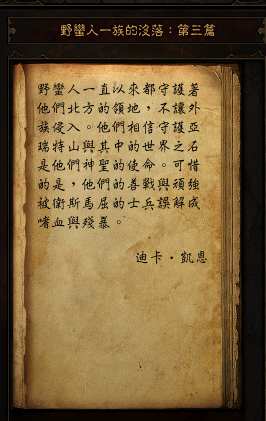 野蠻人一族的沒落：第三篇
野蠻人一直以來都守護著
他們北方的領地，不讓外
族侵入。他們相信守護亞
瑞特山與其中的世界之石
是他們神聖的使命。可惜
的是，他們的善戰與頑強
被衛斯馬屈的士兵誤解成
嗜血與殘暴。
迪卡·凱恩